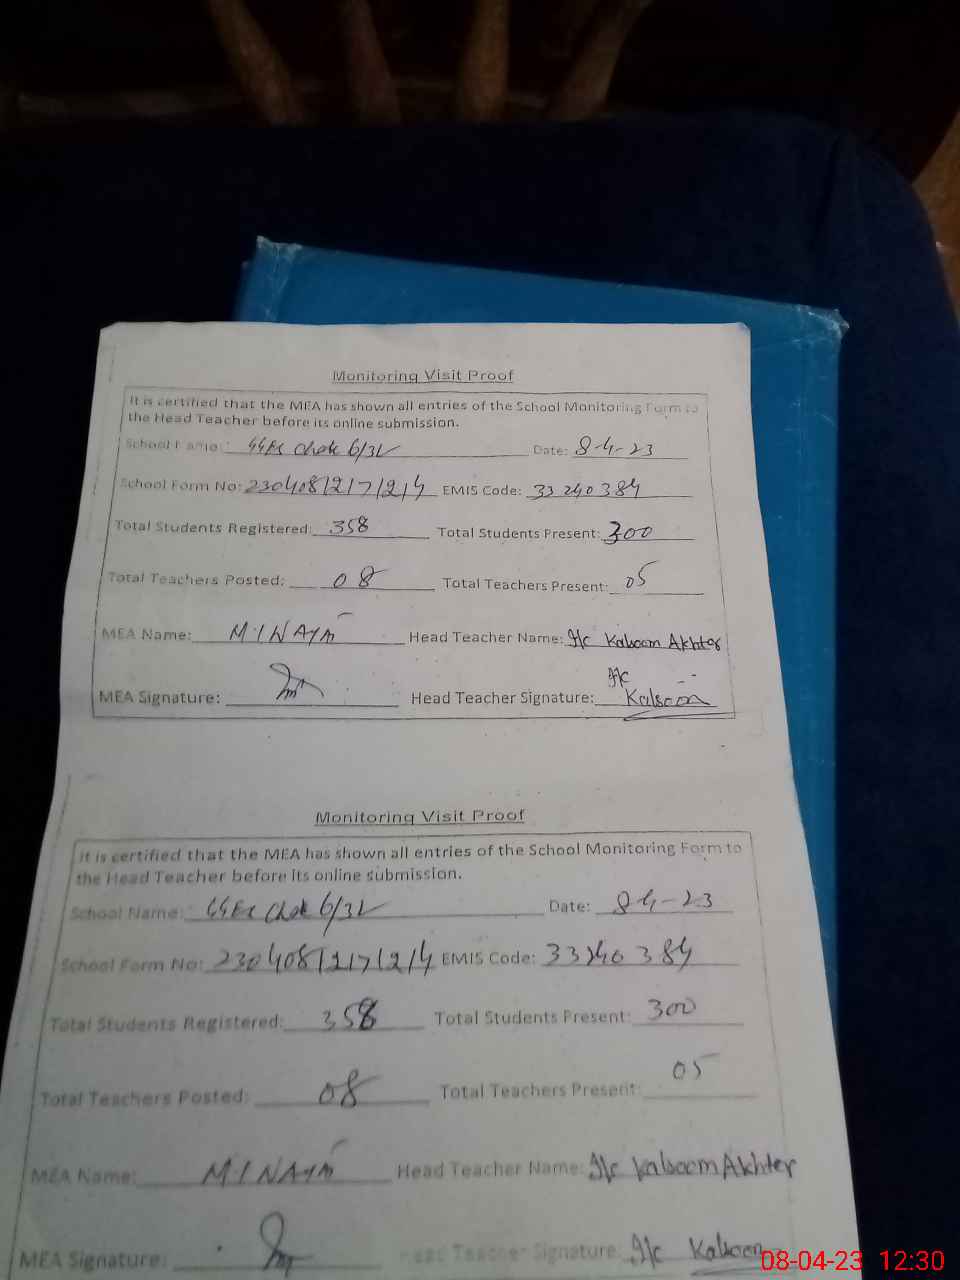 Monitoring Visit Proof
It is certified that the MEA has shown all entries of the School Monitoring Form to
the Head Teacher before its online submission.
School Name: Chak 6/3L Date: 8-4-23
School Form No: 23040812171214 EMIS Code: 33240384
Total Students Registered: 358 Total Students Present: 300
Total Teachers Posted: 08 Total Teachers Present: 05
MEA Name: Head Teacher Name: I/c Kalsoom Akhter
MEA Signature: Head Teacher Signature: I/c Kalsoom
Monitoring Visit Proof
It is certified that the MEA has shown all entries of the School Monitoring Form to
the Head Teacher before its online submission.
School Name: Chak 6/3L Date: 8-4-23
School Form No: 23040812171214 EMIS Code: 33240384
Total Students Registered: 358 Total Students Present: 300
Total Teachers Posted: 08 Total Teachers Present: 05
MEA Name: Head Teacher Name: I/c Kalsoom Akhter
MEA Signature: Head Teacher Signature: I/c Kalsoom
08-04-23 12:30